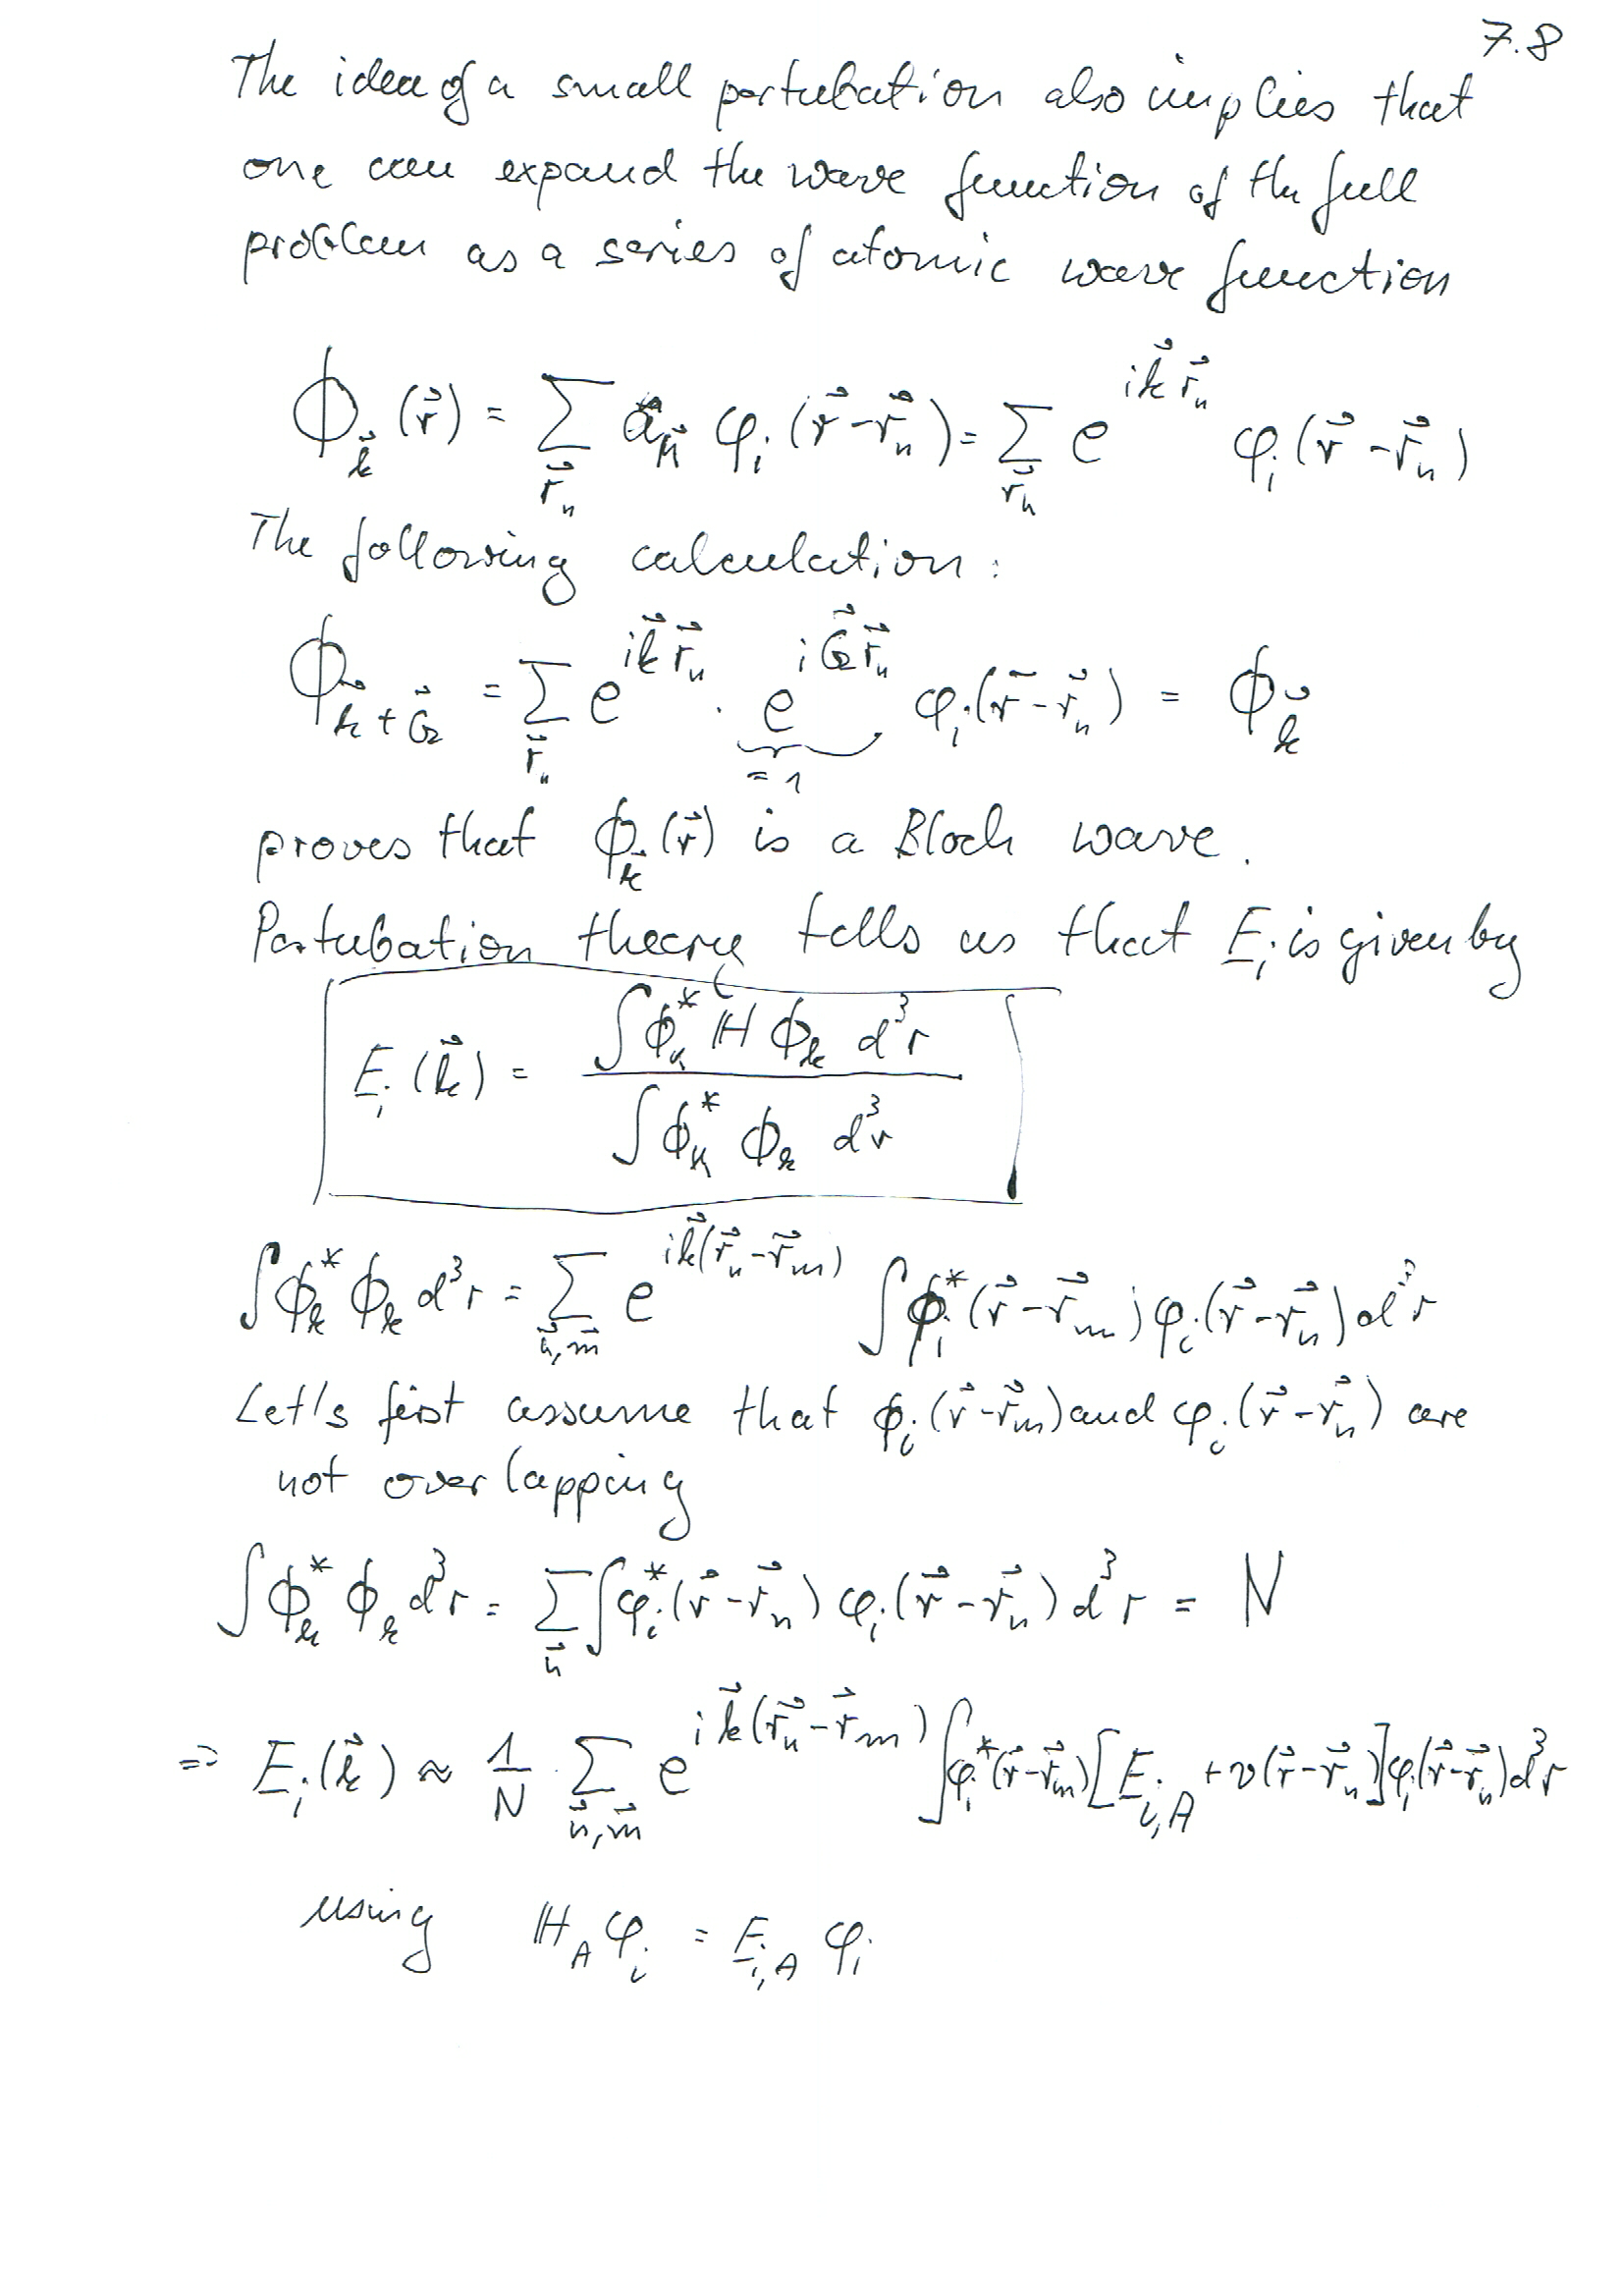 7.8
The idea of a small pertubation also implies that
one can expand the wave function of the full
problem as a series of atomic wave function
Φ_k⃗ (r⃗) = Σ_r⃗ₙ a_n⃗ φᵢ (r⃗ - r⃗ₙ) = Σ_r⃗ₙ e^{i k⃗ r⃗ₙ} φᵢ (r⃗ - r⃗ₙ)
The following calculation:
Φ_{k⃗ + G⃗} = Σ_r⃗ₙ e^{i k⃗ r⃗ₙ} · e^{i G⃗ r⃗ₙ} φᵢ (r⃗ - r⃗ₙ) = Φ_k⃗
= 1
proves that Φ_k⃗ (r⃗) is a Bloch wave.
Pertubation theory tells us that Eᵢ is given by
Eᵢ (k⃗) = ∫ Φ_k* ℍ Φ_k d³r / ∫ Φ_k* Φ_k d³r
∫ Φ_k* Φ_k d³r = Σ_{n⃗,m⃗} e^{i k⃗ (r⃗ₙ - r⃗ₘ)} ∫ φᵢ* (r⃗ - r⃗ₘ) φᵢ (r⃗ - r⃗ₙ) d³r
Let's first assume that φᵢ (r⃗ - r⃗ₘ) and φᵢ (r⃗ - r⃗ₙ) are
not overlapping
∫ Φ_k* Φ_k d³r = Σ_n⃗ ∫ φᵢ* (r⃗ - r⃗ₙ) φᵢ (r⃗ - r⃗ₙ) d³r = N
⇒ Eᵢ (k⃗) ≈ 1/N · Σ_{n⃗,m⃗} e^{i k⃗ (r⃗ₙ - r⃗ₘ)} ∫ φᵢ* (r⃗ - r⃗ₘ) [E_{i,A} + v (r⃗ - r⃗ₙ)] φᵢ (r⃗ - r⃗ₙ) d³r
using ℍ_A φᵢ = E_{i,A} φᵢ